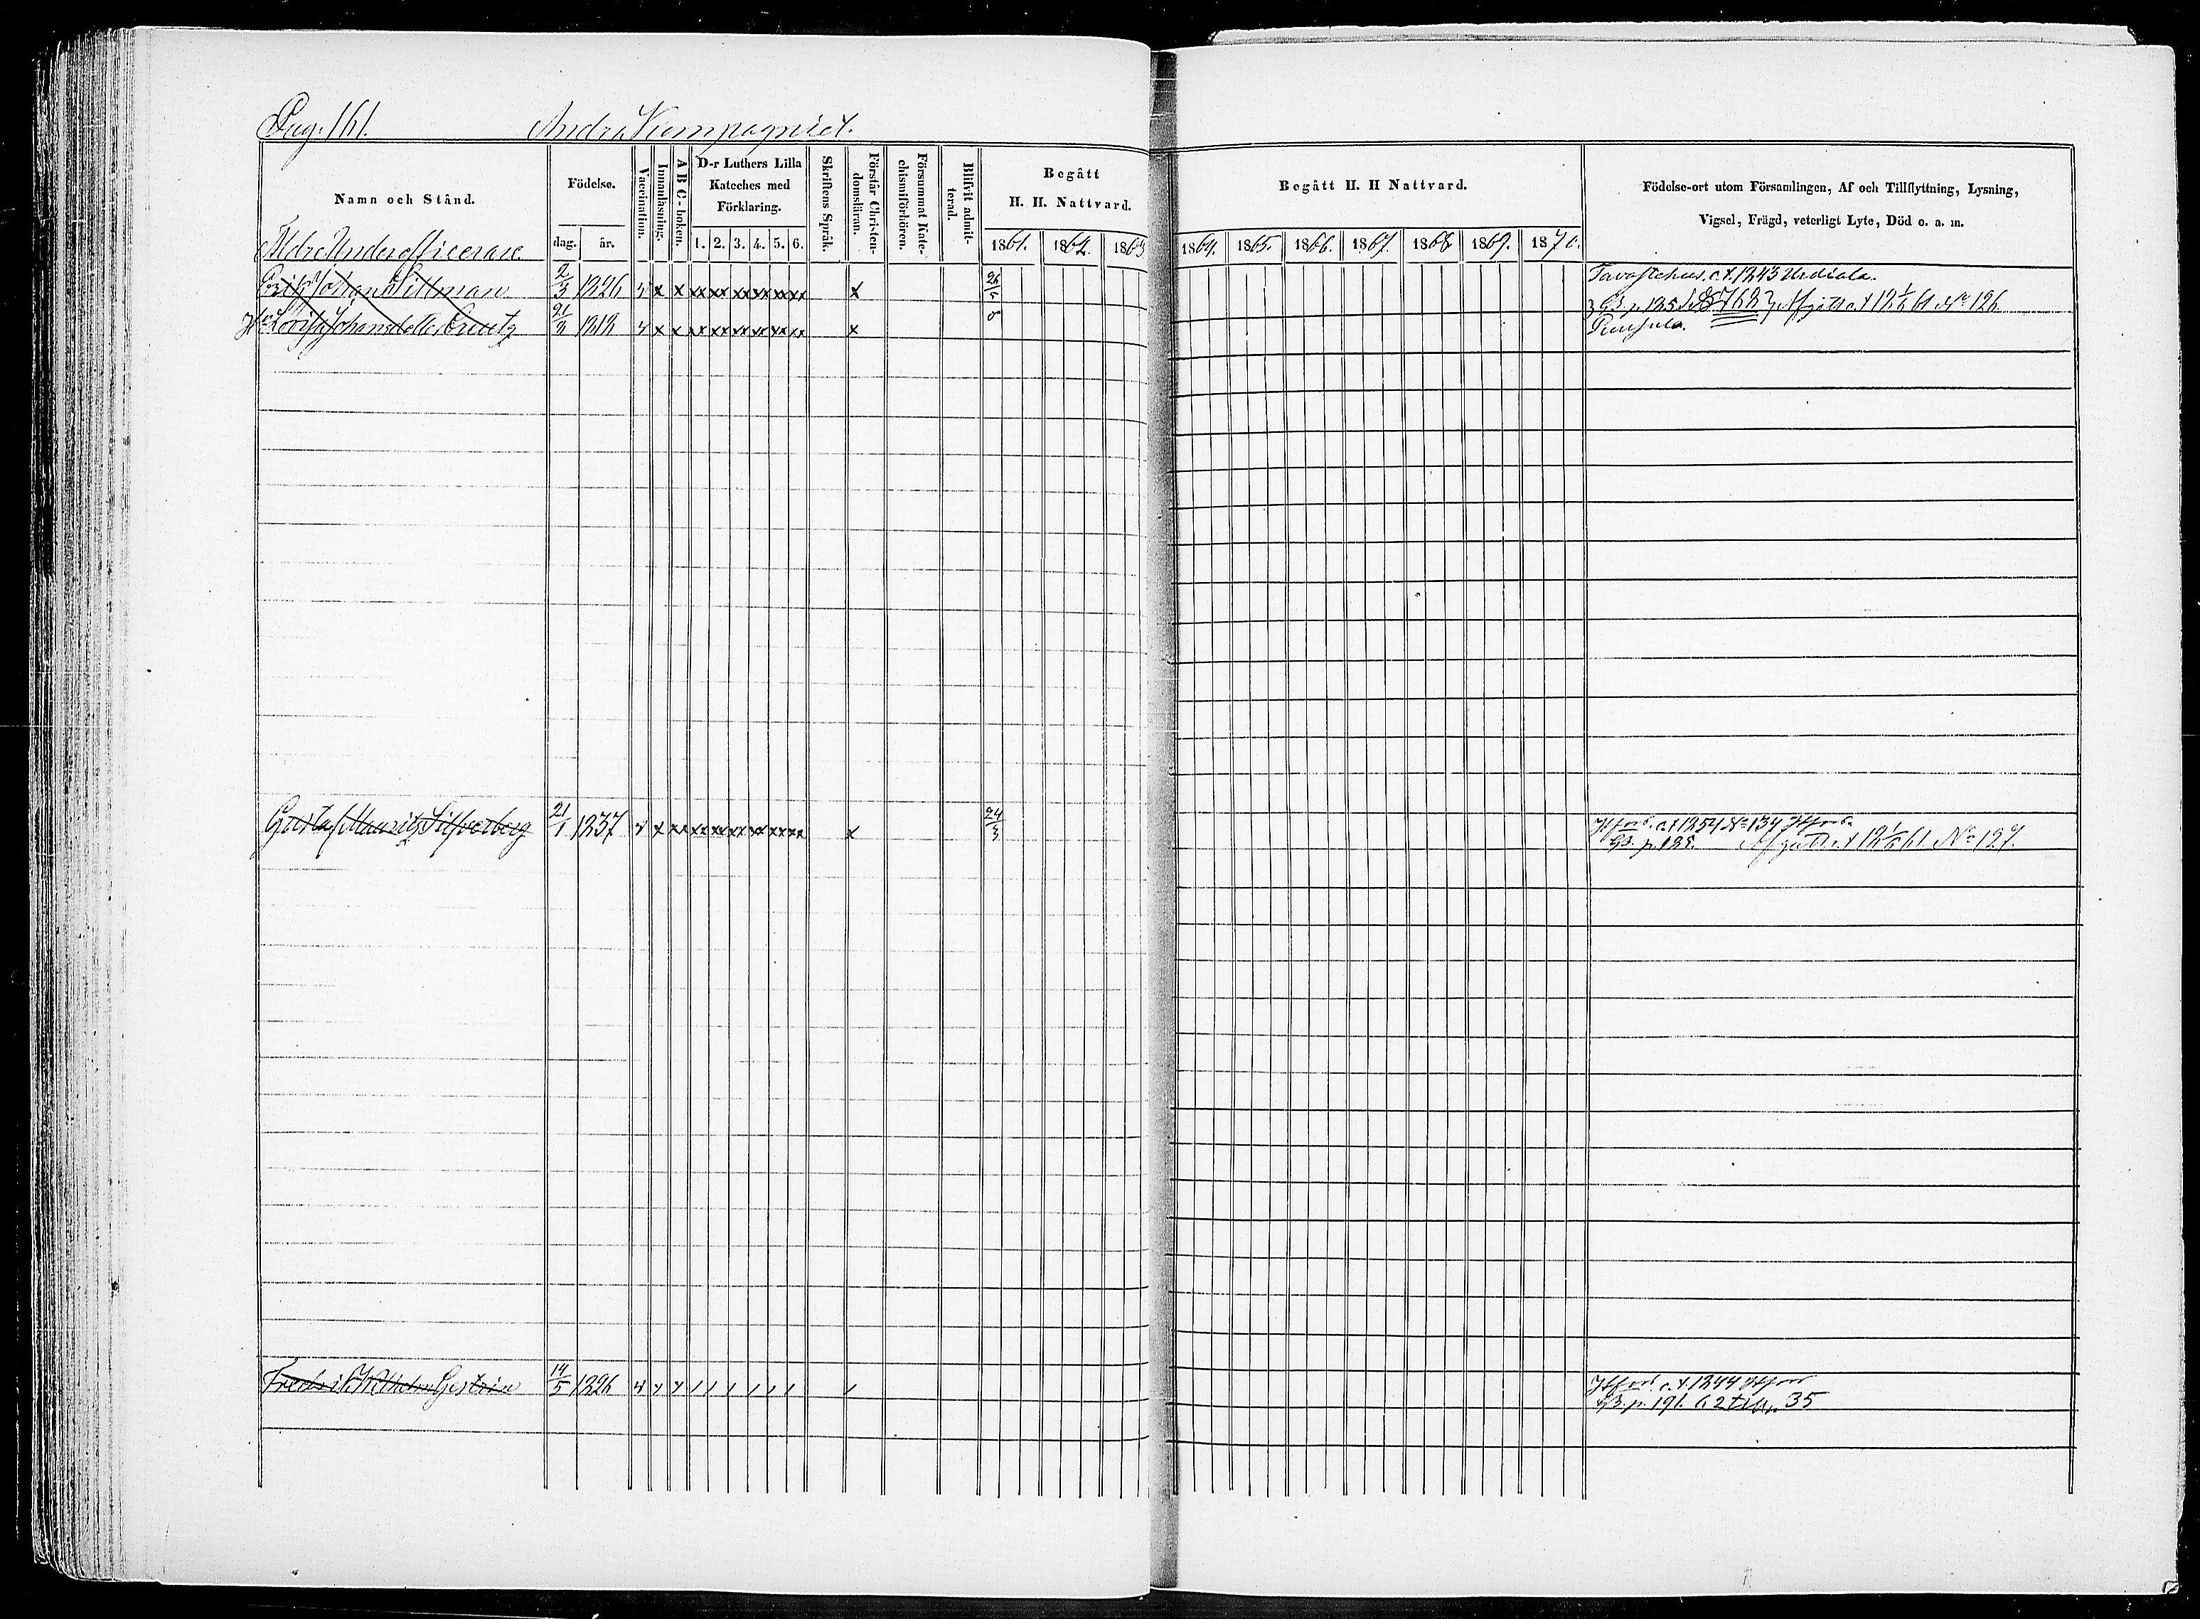 Pag. 161. Andra Kompagniet.
Namn och Stånd. Födelse. dag. år. Vaccination. Innanläsning. A B C - boken. D-r Luthers Lilla Kateches med Förklaring. 1. 2. 3. 4. 5. 6. Skriftens Språk. Förstår Christendomsläran. Försummat Katechismiförhören. Blifvit admitterad. Begått H. H. Nattvard. 1861. 1862. 1863
Begått H. H Nattvard. 1864. 1865. 1866. 1867. 1868 1869. 1870. Födelse-ort utom Församlingen, Af och Tillflyttning, Lysning, Vigsel, Frägd, veterligt Lyte, Död o. a. m.
Äldre Underofficerare.
Erik Johan Sillman 2/3 1826 x x xx xx xx xx xx xx x 26/5 Tavastehus. c. t. 1843 Urdiala.
H:u Lovisa Johansd:r Creutz 21/3 1818 x x xx xx xx xx xx xx x Afgått c. t 12 1/6 61 No 126.
Gustaf Mauritz Silfverberg 21/1 1837 x xx xx xx xx xx xx xx x 24/3 H:fors. c. t 1854 No 134 H:fors.
p. 128. Afgått c. t 12 1/6 61 No 127.
Fredrik Wilhelm Gestrin 14/5 1826 / / / / / / / H:fors. c. t 1844 H:fors
p. 191. 35